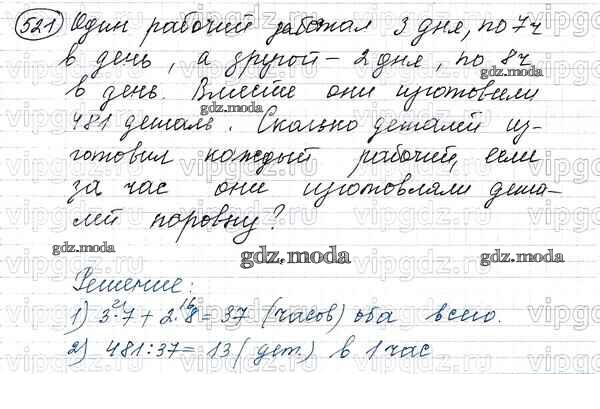 521 Один рабочий работал 3 дня, по 7ч
в день, а другой - 2 дня, по 8ч
в день. Вместе они изготовили
481 деталь. Сколько деталей из-
готовил каждый рабочий, если
за час они изготовляли дета-
лей поровну?
gdz.moda
Решение:
1) 3·7 + 2·8 = 37 (часов) оба всего.
21 16
2) 481:37 = 13 (дет.) в 1 час